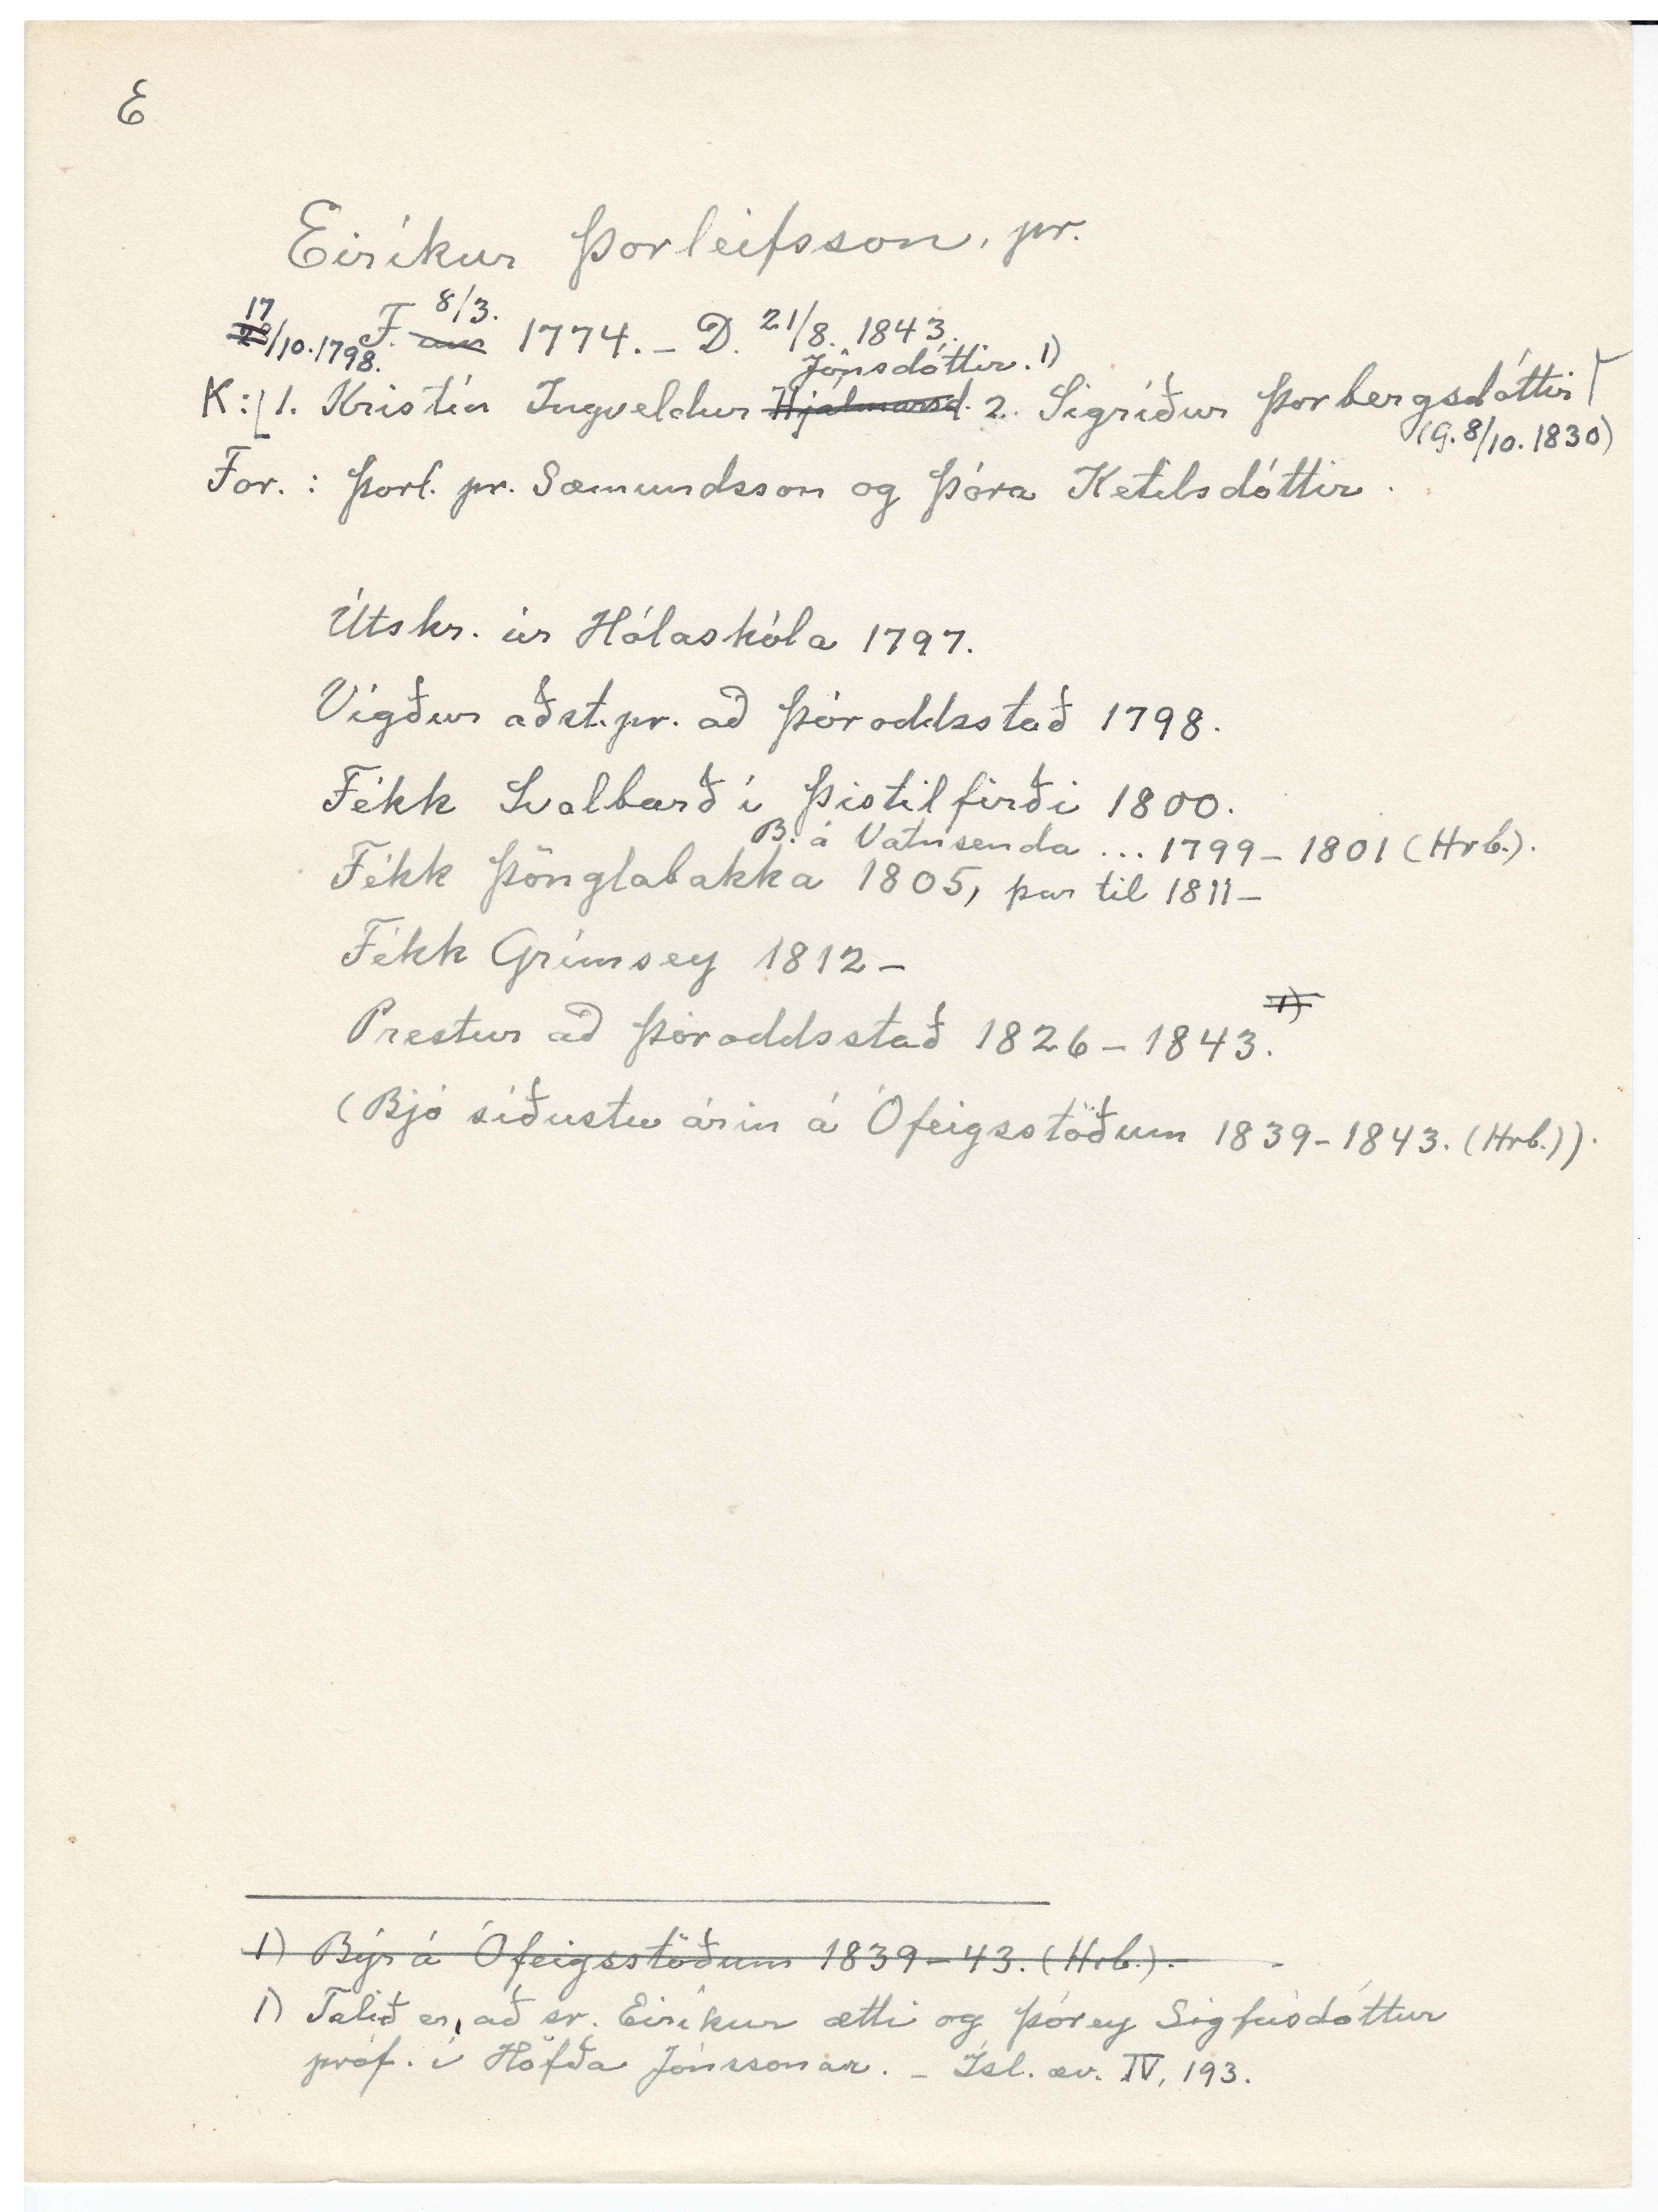 E
Eiríkur Þorleifsson, pr.
F. 8/3. 1774. – D. 21/8. 1843.
17/10. 1798.
Jónsdóttir. 1)
K: 1. Kristín Ingveldur Hjálmarsd. 2. Sigríður Þorbergsdóttir
(G. 8/10. 1830)
For. : Þorl. pr. Sæmundsson og Þóra Ketilsdóttir.
Útskr. úr Hólaskóla 1797.
Vígður aðst.pr. að Þóroddsstað 1798.
Fékk Svalbarð í Þistilfirði 1800.
B. á Vatnsenda ... 1799 – 1801 (Hrb.).
Fékk Þönglabakka 1805, þar til 1811 –
Fékk Grímsey 1812 –
Prestur að Þóroddsstað 1826 – 1843. 1)
(Bjó síðustu árin á Ófeigsstöðum 1839 – 1843. (Hrb.)).
1) Býr á Ófeigsstöðum 1839 – 43. (Hrb.).
1) Talið er, að sr. Eiríkur ætti og Þórey Sigfúsdóttur
próf. í Höfða Jónssonar. – Ísl. æv. IV, 193.